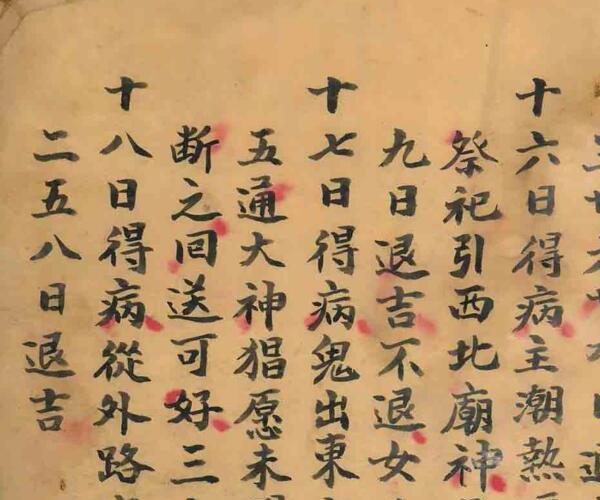 十六日得病主潮熱
祭祀引西北廟神
九日退吉不退女
十七日得病鬼出東
五通大神猖愿未
断之回送可好三
十八日得病從外路
二五八日退吉